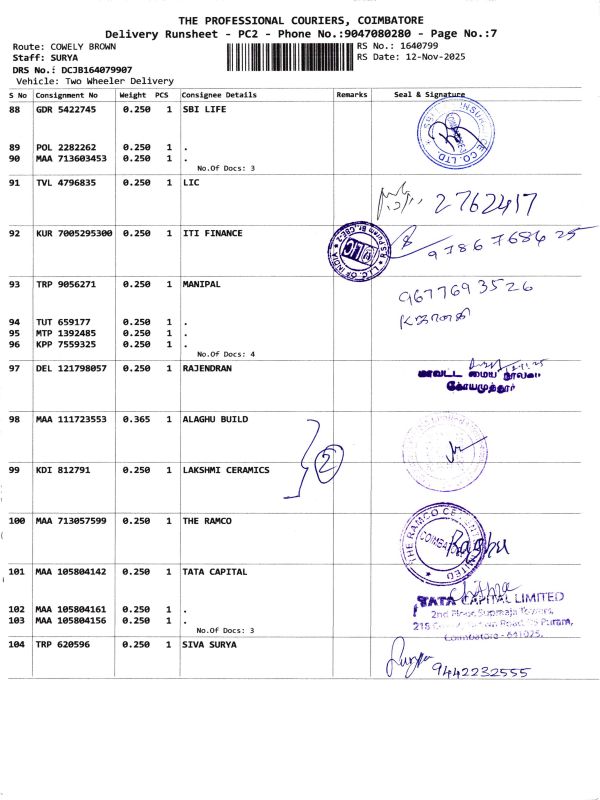 THE PROFESSIONAL COURIERS, COIMBATORE
Delivery Runsheet - PC2 - Phone No.:9047080280 - Page No.:7
Route: COWELY BROWN
RS No.: 1640799
Staff: SURYA
RS Date: 12-Nov-2025
DRS No.: DCJB164079907
Vehicle: Two Wheeler Delivery
S No Consignment No Weight PCS Consignee Details Remarks Seal & Signature
88 GDR 5422745 0.250 1 SBI LIFE
89 POL 2282262 0.250 1 .
90 MAA 713603453 0.250 1 .
No.Of Docs: 3
91 TVL 4796835 0.250 1 LIC
2762417
92 KUR 7005295300 0.250 1 ITI FINANCE
9786768425
93 TRP 9056271 0.250 1 MANIPAL
9677693526
94 TUT 659177 0.250 1 .
95 MTP 1392485 0.250 1 .
96 KPP 7559325 0.250 1 .
No.Of Docs: 4
97 DEL 121798057 0.250 1 RAJENDRAN
மாவட்ட மைய நூலகம்
கோயமுத்தூர்
98 MAA 111723553 0.365 1 ALAGHU BUILD
2
99 KDI 812791 0.250 1 LAKSHMI CERAMICS
100 MAA 713057599 0.250 1 THE RAMCO
Raghu
101 MAA 105804142 0.250 1 TATA CAPITAL
TATA CAPITAL LIMITED
102 MAA 105804161 0.250 1 .
2nd Floor, Supmaja Towers,
103 MAA 105804156 0.250 1 .
Puram,
No.Of Docs: 3
Coimbatore - 641025.
104 TRP 620596 0.250 1 SIVA SURYA
9442232555